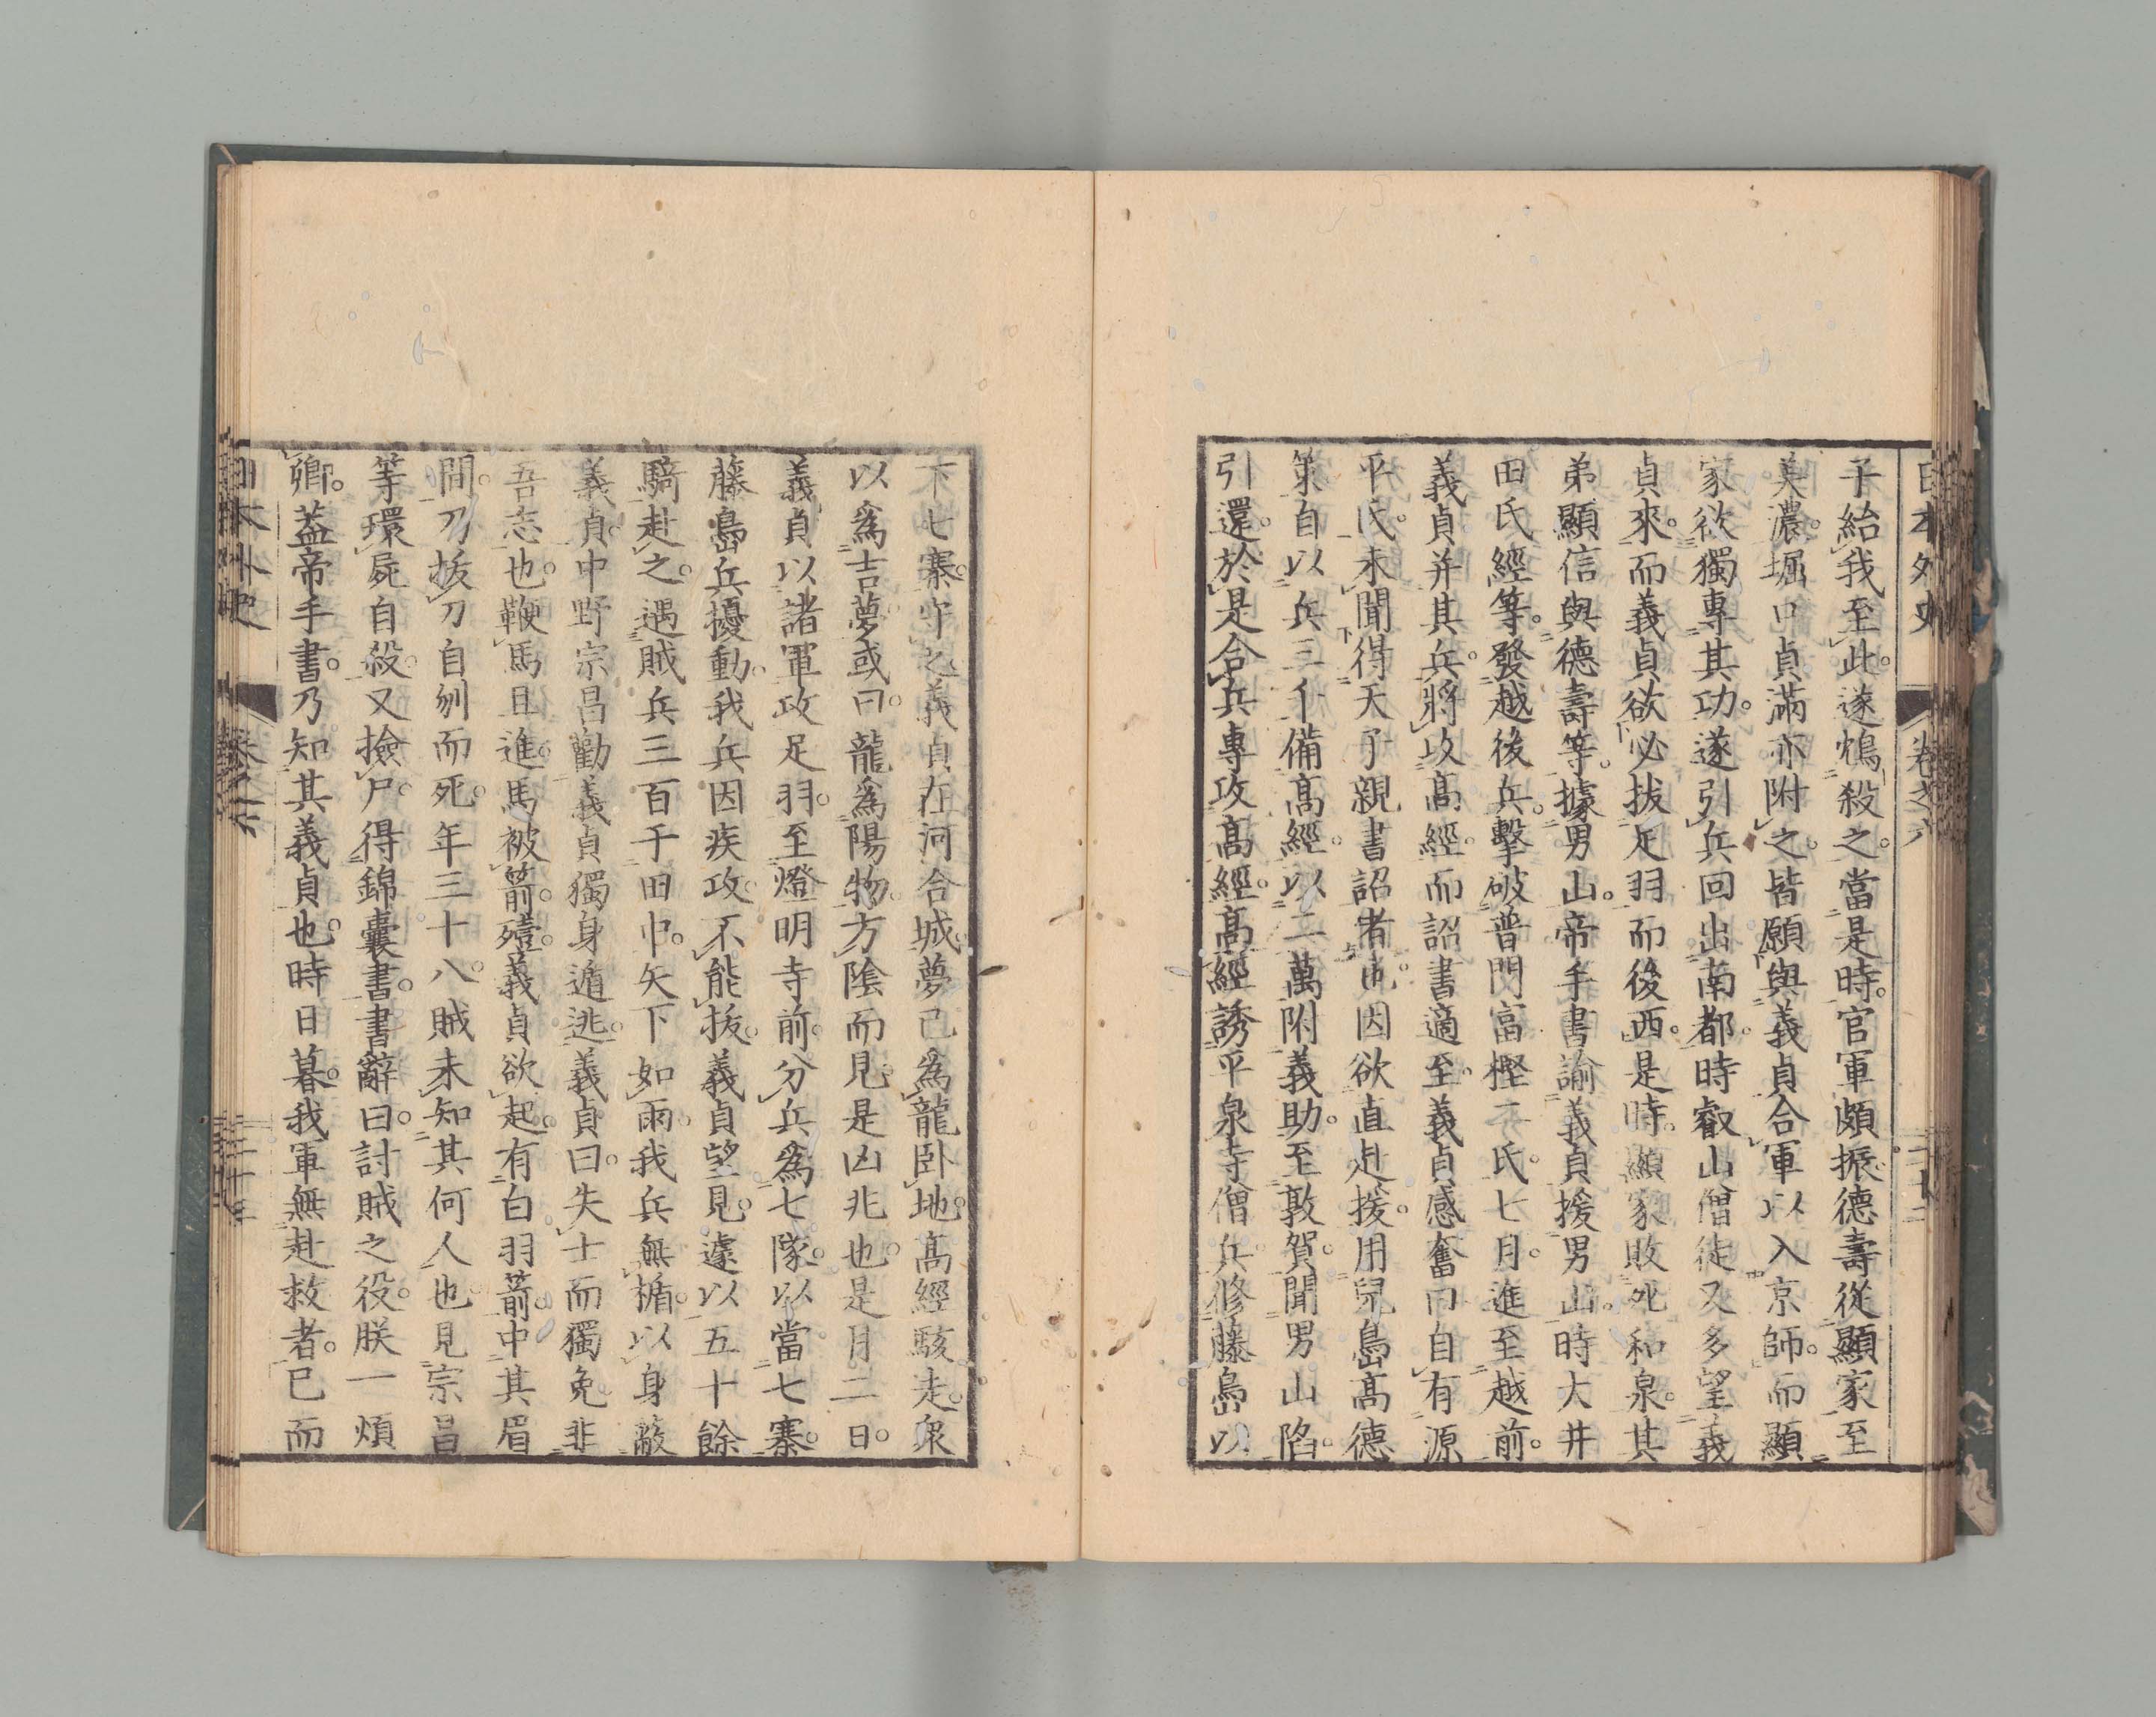 日本外史 卷之六 二十二
子紿我至此。遂鴆殺之。當是時。官軍頗振。德壽從顯家至
美濃。堀口貞滿亦附之。皆願與義貞合軍以入京師。而顯
家欲獨專其功。遂引兵回出南都。時叡山僧徒又多望義
貞來。而義貞欲必拔足羽而後西。是時。顯家敗死和泉。其
弟顯信與德壽等。據男山。帝手書諭義貞援男山。時大井
田氏經等。發越後兵。擊破普門富樫二氏。七月。進至越前。
義貞并其兵。將攻高經。而詔書適至。義貞感奮曰自有源
平氏。未聞得天子親書詔者也。因欲直赴援。用兒島高德
策自以兵三千備高經。以二萬附義助。至敦賀。聞男山陷。
引還。於是合兵專攻高經。高經誘平泉寺僧兵修藤島以
下七寨。守之。義貞在河合城。夢己爲龍臥地。高經駭走。衆
以爲吉夢。或曰。龍爲陽物。方陰而見。是凶兆也。是月二日。
義貞以諸軍攻足羽。至燈明寺前。分兵爲七隊。以當七寨。
藤島兵擾動。我兵因疾攻。不能拔。義貞望見。遽以五十餘
騎赴之。遇賊兵三百于田中。矢下如雨。我兵無楯。以身蔽
義貞。中野宗昌勸義貞獨身遁逃。義貞曰。失士而獨免。非
吾志也。鞭馬且進。馬被箭。殪。義貞欲起。有白羽箭。中其眉
間。乃拔刀自刎而死。年三十八。賊未知其何人也。見宗昌
等環屍自殺。又撿尸。得錦囊書。書辭曰。討賊之役。朕一煩
卿。蓋帝手書。乃知其義貞也。時日暮。我軍無赴救者。已而
日本外史 卷之六 二十三